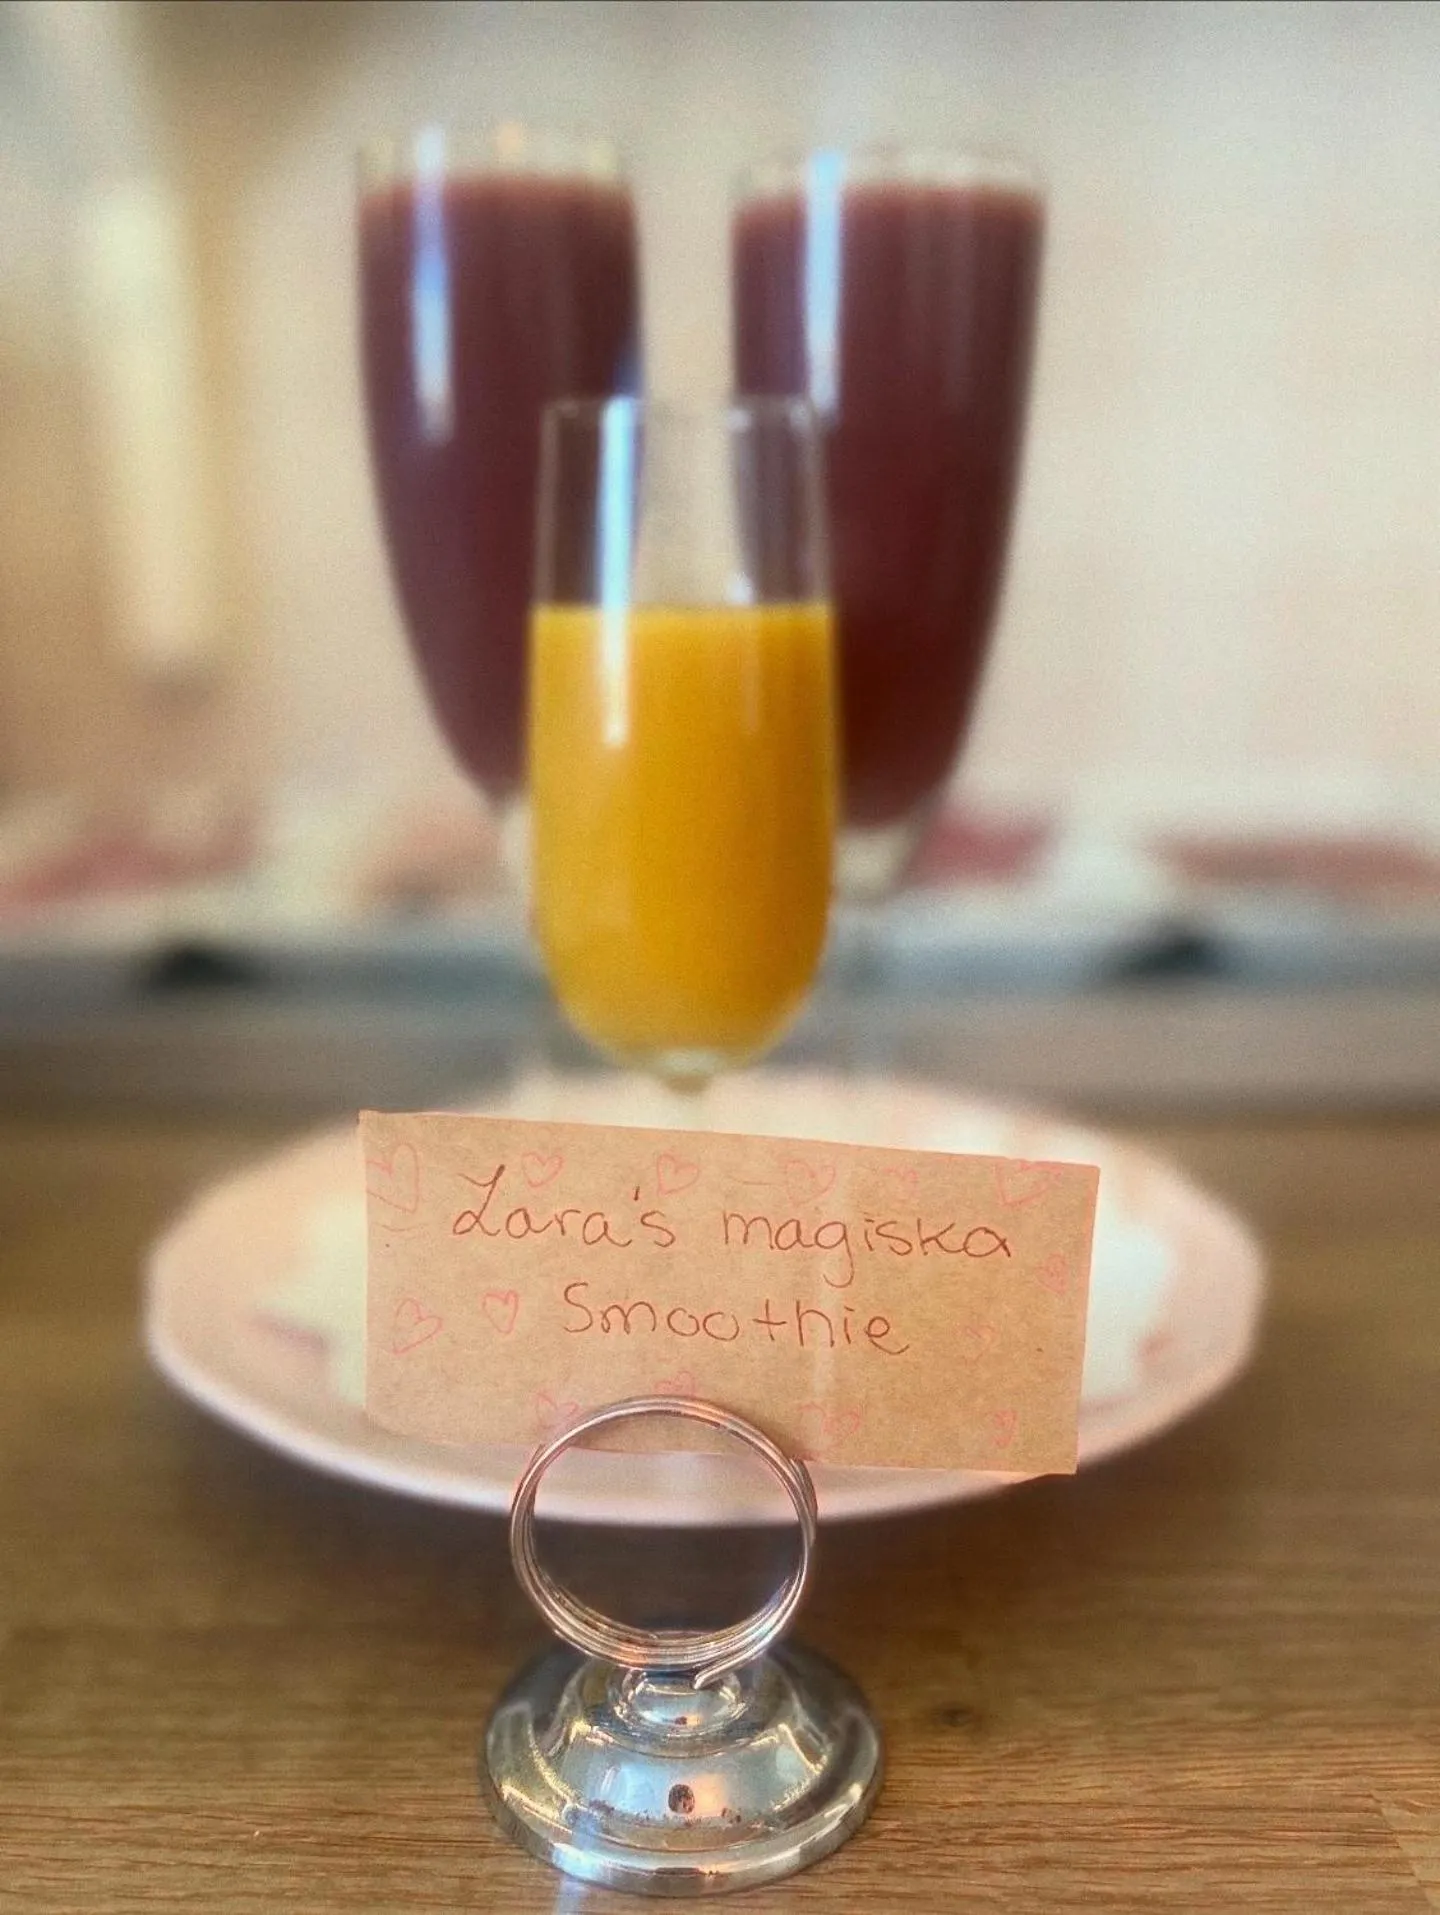 Lara's magiska
Smoothie